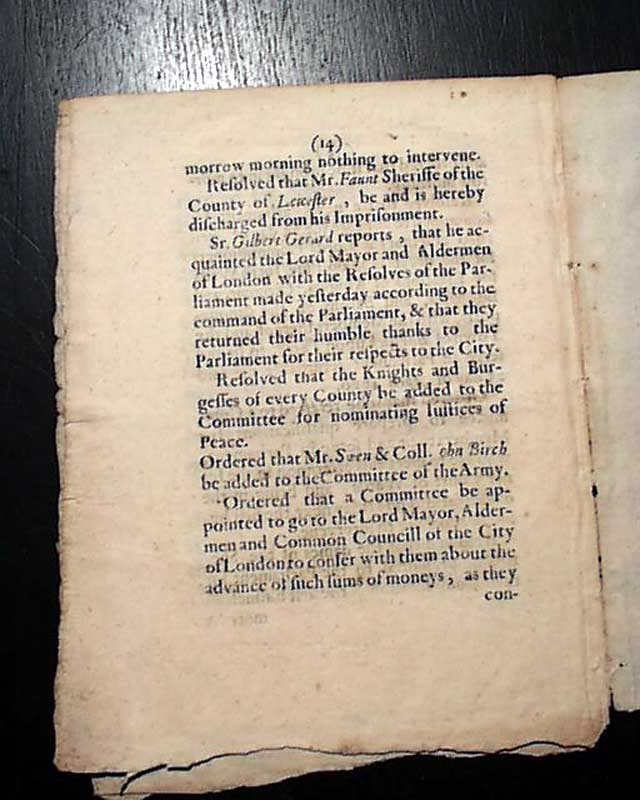 (14)
morrow morning nothing to intervene.
Reſolved that Mr. Faunt Sheriffe of the
County of Leiceſter , be and is hereby
diſcharged from his Impriſonment.
Sr. Gilbert Gerard reports , that he ac-
quainted the Lord Mayor and Aldermen
of London with the Reſolves of the Par-
liament made yeſterday according to the
command of the Parliament, & that they
returned their humble thanks to the
Parliament for their reſpects to the City.
Reſolved that the Knights and Bur-
geſſes of every County be added to the
Committee for nominating Iuſtices of
Peace.
Ordered that Mr. & Coll. ohn Birch
be added to the Committee of the Army.
Ordered that a Committee be ap-
pointed to go to the Lord Mayor, Alder-
men and Common Councill of the City
of London to confer with them about the
advance of ſuch ſums of moneys , as they
con-